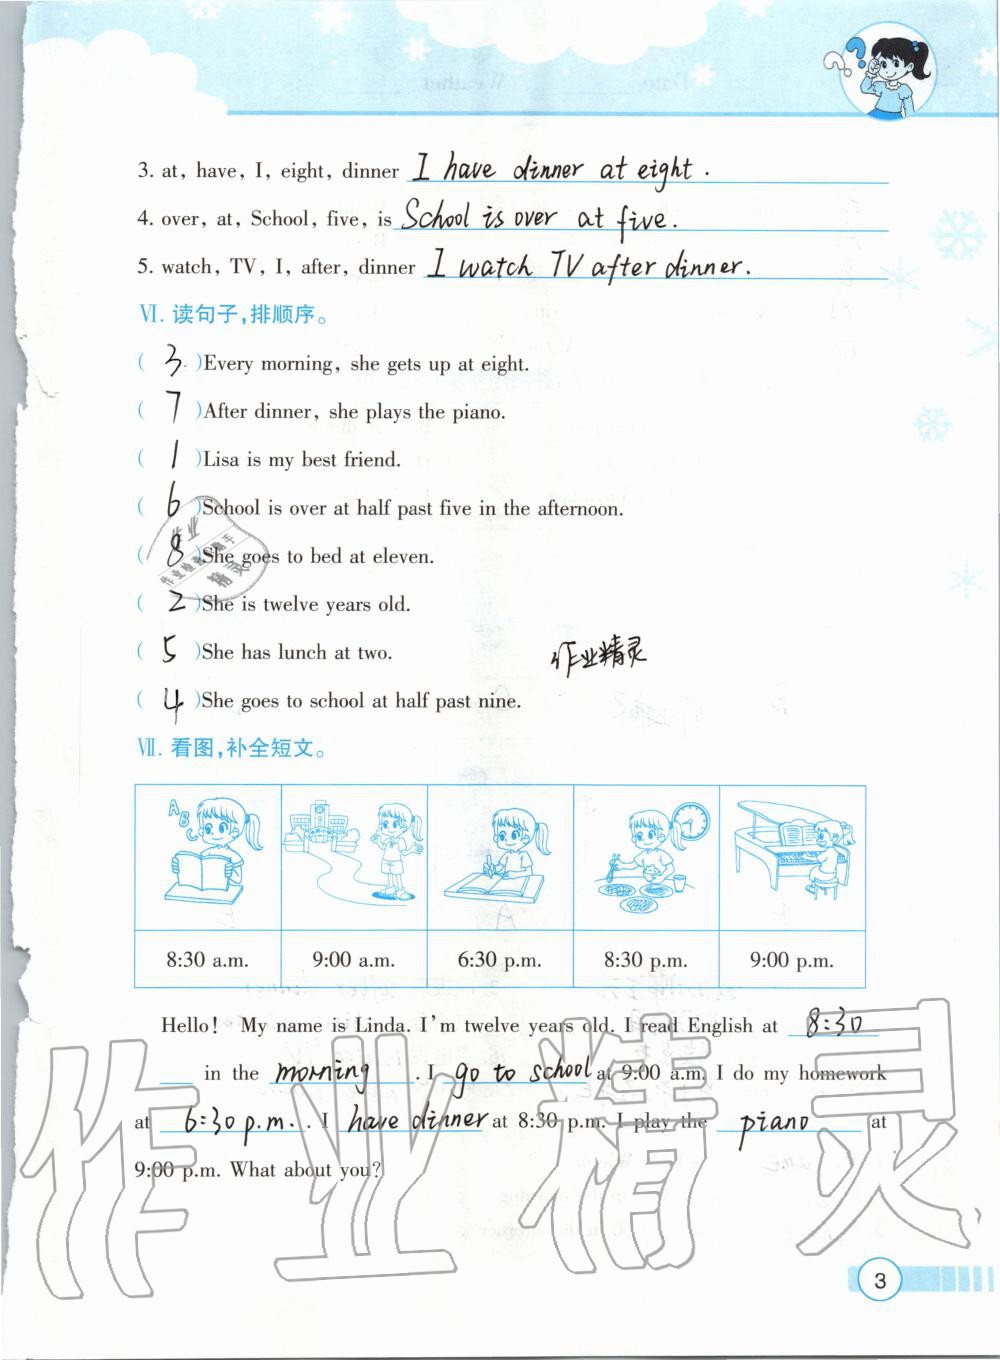 3. at, have, I, eight, dinner I have dinner at eight.
4. over, at, School, five, is School is over at five.
5. watch, TV, I, after, dinner I watch TV after dinner.
Ⅵ. 读句子,排顺序。
( 3 )Every morning, she gets up at eight.
( 7 )After dinner, she plays the piano.
( 1 )Lisa is my best friend.
( 6 )School is over at half past five in the afternoon.
( 8 )She goes to bed at eleven.
( 2 )She is twelve years old.
( 5 )She has lunch at two.
作业精灵
( 4 )She goes to school at half past nine.
Ⅶ. 看图,补全短文。
A B C
8:30 a.m. 9:00 a.m. 6:30 p.m. 8:30 p.m. 9:00 p.m.
Hello! My name is Linda. I'm twelve years old. I read English at 8:30
in the morning. I go to school at 9:00 a.m. I do my homework
at 6:30 p.m.. I have dinner at 8:30 p.m. I play the piano at
9:00 p.m. What about you?
作业精灵
3